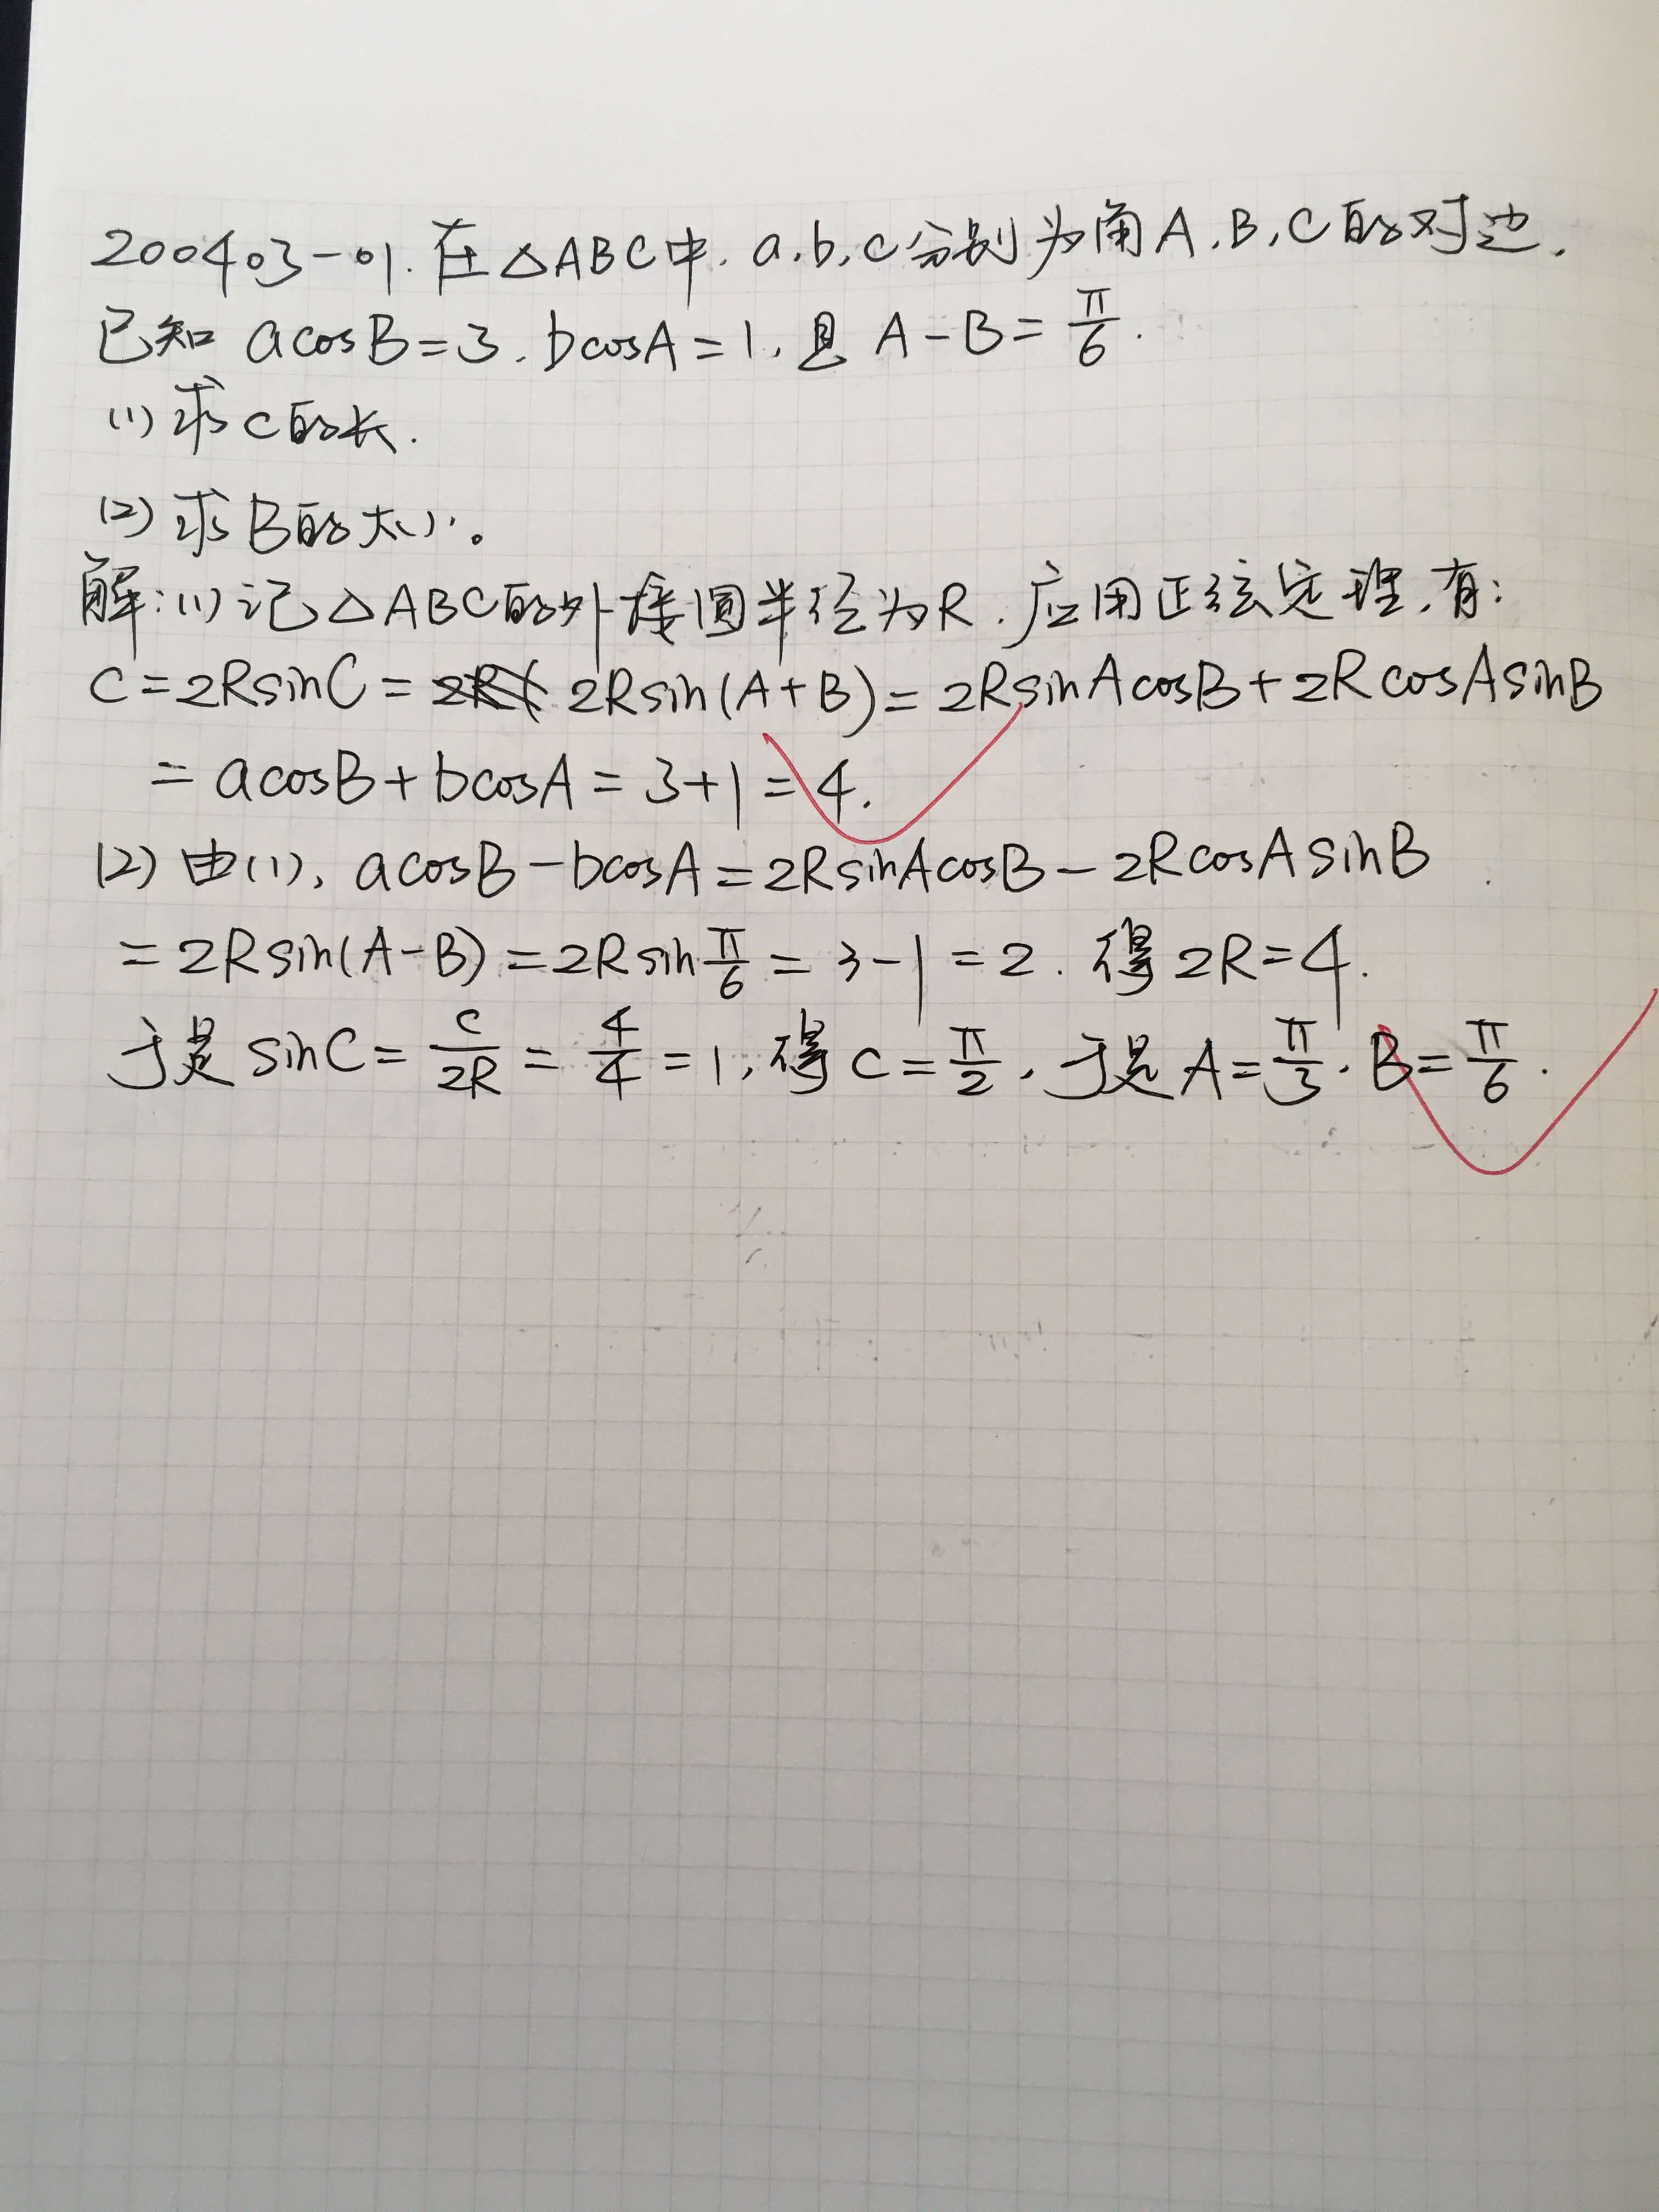 200403-01. 在△ABC中. a,b,c分别为角A,B,C的对边.
已知 acosB=3, bcosA=1, 且 A-B=π/6.
(1) 求c的长.
(2) 求B的大小。
解:(1)记△ABC的外接圆半径为R. 应用正弦定理,有:
c=2RsinC= 2Rsin(A+B)=2RsinAcosB+2RcosAsinB
=acosB+bcosA=3+1=4.
(2) 由(1), acosB-bcosA=2RsinAcosB-2RcosAsinB
=2Rsin(A-B)=2Rsinπ/6=3-1=2. 得2R=4.
于是sinC=c/2R=4/4=1, 得C=π/2, 于是A=π/3, B=π/6.